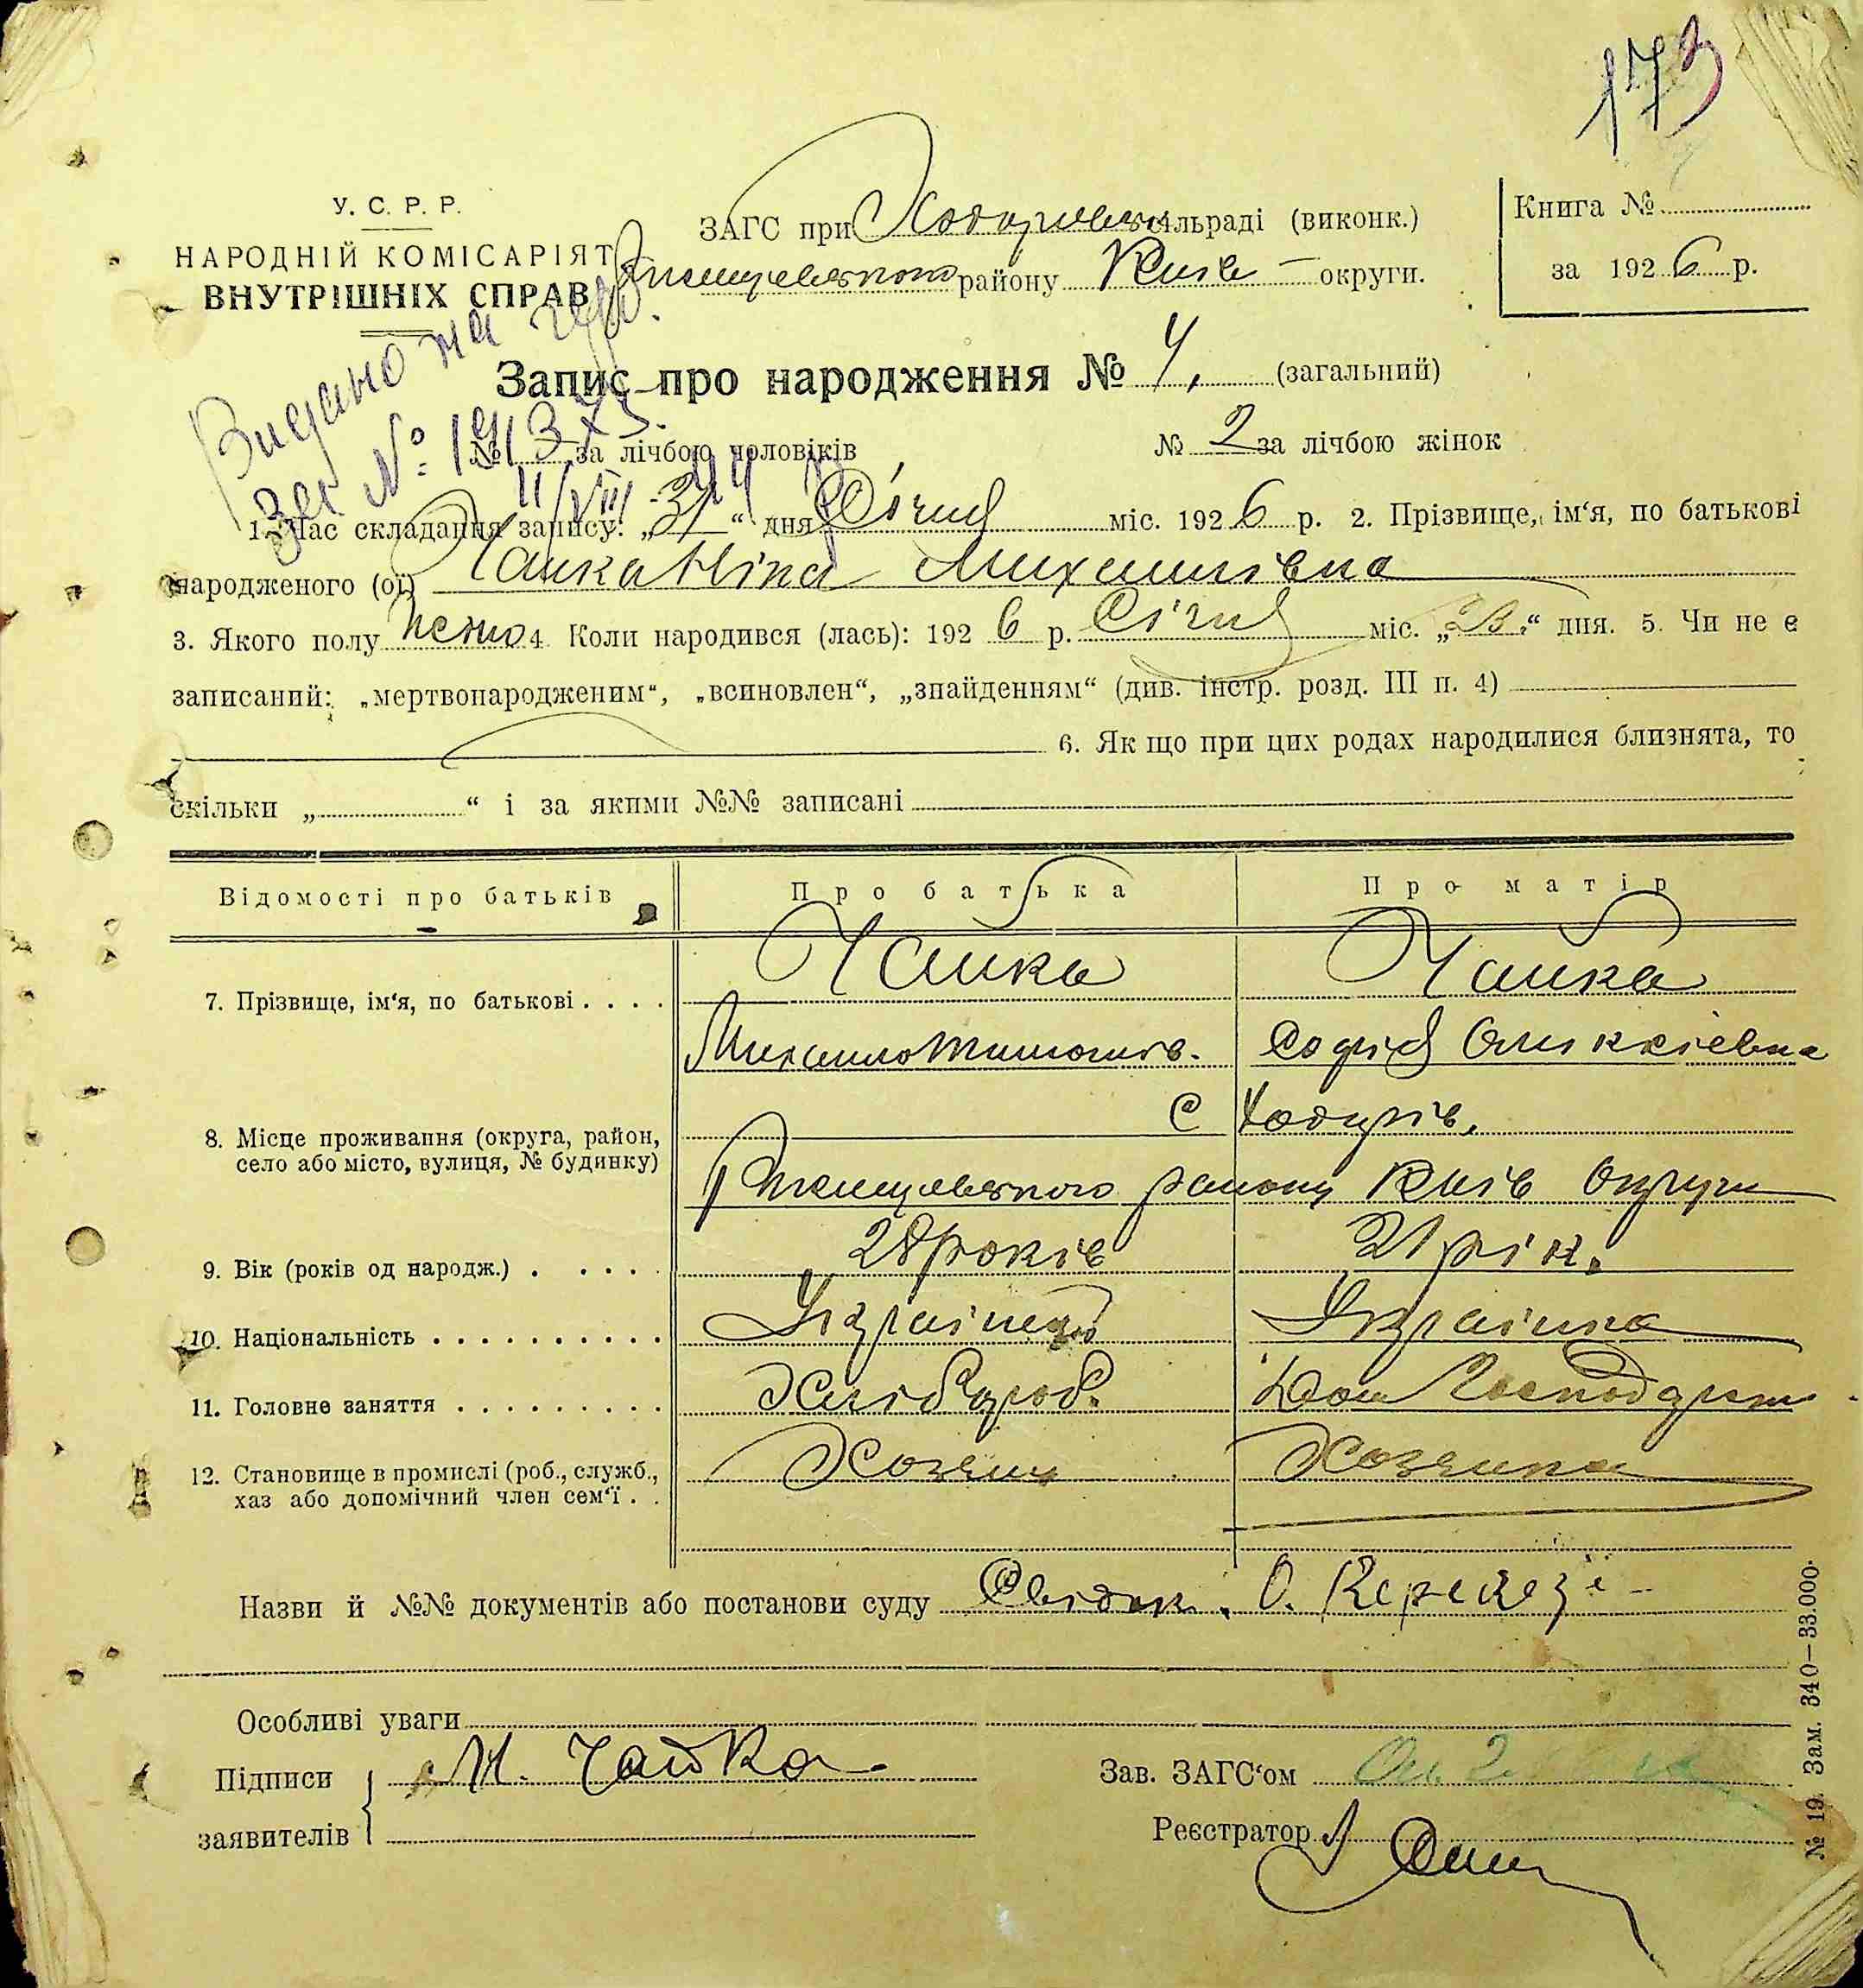 173
У. С. Р. Р.
НАРОДНІЙ КОМІСАРІЯТ
ВНУТРІШНІХ СПРАВ
ЗАГС при Ходорівськ сільраді (виконк.)
Ржищевського району Київ - округи.
Книга №
за 1926 р.
Видано на
№ 19
11/VIII
Запис про народження № 4, (загальний)
№ за лічбою чоловіків № 2 за лічбою жінок
1. Час складання запису: „31“ дня Січня міс. 1926 р. 2. Прізвище, ім‘я, по батькові
народженого (ої) Чайка Ніна Михайлівна
3. Якого полу жено 4. Коли народився (лась): 1926 р. Січня міс. „23“ дня. 5. Чи не є
записаний: „мертвонародженим“, „всиновлен“, „знайденням“ (див. інстр. розд. III п. 4)
6. Як що при цих родах народилися близнята, то
скільки „ “ і за якими №№ записані
Відомості про батьків Про батька Про матір
7. Прізвище, ім‘я, по батькові . . . . Чайка Чайка
Михайло Тимошів. Софія Оликсіевна
8. Місце проживання (округа, район, С Ходорів,
село або місто, вулиця, № будинку) Ржищевського району Київ Округи
9. Вік (років од народж.) . . . . . 28 років 21 рік.
10. Національність . . . . . . . . . . Українець Українка
11. Головне заняття . . . . . . . . . Хлібороб. Дом Господарст
12. Становище в промислі (роб., служб., Хозяин Хозяика
хаз або допомічний член сем‘ї . .
Назви й №№ документів або постанови суду Свідок. О.
Особливі уваги
Підписи М. Чайка Зав. ЗАГС‘ом
заявителів Реєстратор
№ 19. Зам. 340—33.000.